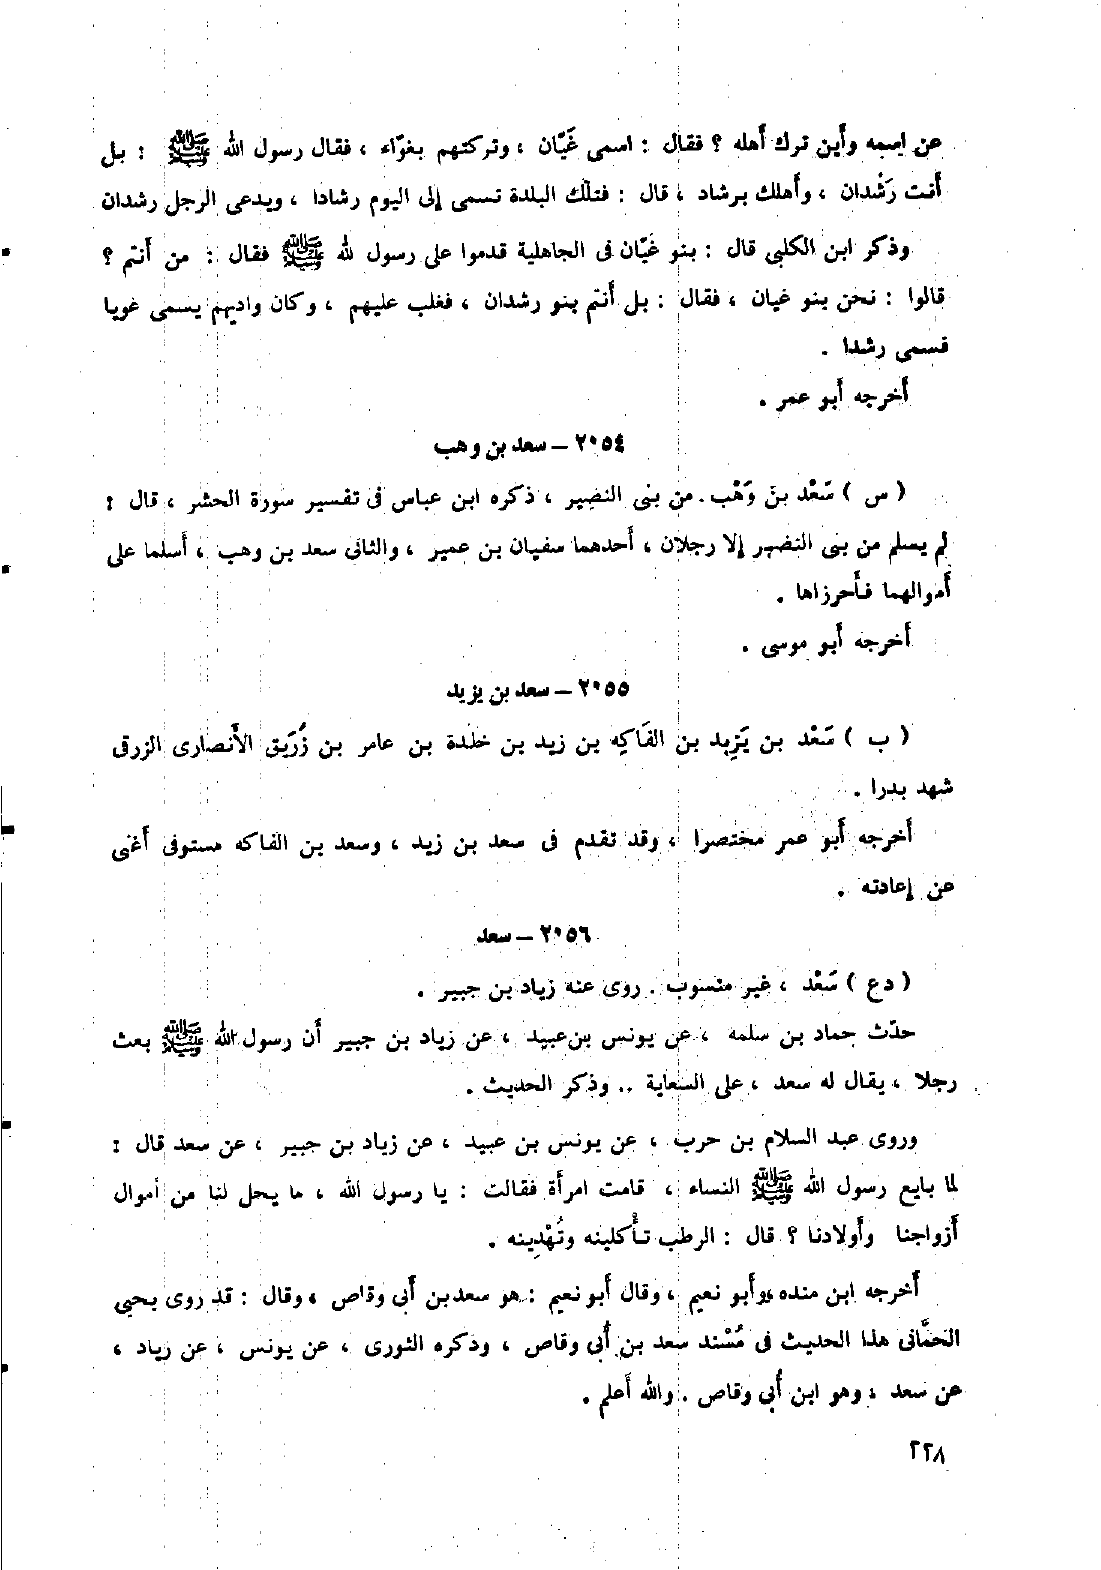 عن اسمه وأين ترك أهله ؟ فقال : اسمى غَيّان ، وتركتهم بغوّاء ، فقال رسول الله ﷺ : بل
أنت رَشْدان ، وأهلك برشاد ، قال : فتلك البلدة تسمى إلى اليوم رشادا ، ويدعى الرجل رشدان
وذكر ابن الكلبى قال : بنو غَيّان فى الجاهلية قدموا على رسول لله ﷺ فقال : من أنتم ؟
قالوا : نحن بنو غيان ، فقال : بل أنتم بنو رشدان ، فغلب عليهم ، وكان واديهم يسمى غويا
فسمى رشدا .
أخرجه أبو عمر .
٢٠٥٤ – سعد بن وهب
( س ) سَعْد بنَ وَهْب . من بنى النضِير ، ذكره ابن عباس فى تفسير سورة الحشر ، قال :
لم يسلم من بنى النضير إلا رجلان ، أحدهما سفيان بن عمير ، والثانى سعد بن وهب ، أسلما على
أموالهما فأحرزاها .
أخرجه أبو موسى .
٢٠٥٥ – سعد بن يزيد
( ب ) سَعْد بن يَزِيد بن الفَاكِه بن زيد بن خلدة بن عامر بن زُرَيق الأنصارى الزرقى
شهد بدرا .
أخرجه أبو عمر مختصرا ، وقد تقدم فى سعد بن زيد ، وسعد بن الفاكه مستوفى أغنى
عن إعادته .
٢٠٥٦ – سعد
( دع ) سَعْد ، غير منسوب . روى عنه زياد بن جبير .
حدّث حماد بن سلمه ، عن يونس بن عبيد ، عن زياد بن جبير أن رسول الله ﷺ بعث
رجلا ، يقال له سعد ، على السعاية .. وذكر الحديث .
وروى عبد السلام بن حرب ، عن يونس بن عبيد ، عن زياد بن جبير ، عن سعد قال :
لما بايع رسول الله ﷺ النساء ، قامت امرأة فقالت : يا رسول الله ، ما يحل لنا من أموال
أزواجنا وأولادنا ؟ قال : الرطب تأْكلينه وتُهْدِينه .
أخرجه ابن منده وأبو نعيم ، وقال أبو نعيم : هو سعد بن أبى وقاص ، وقال : قد روى يحيى
الحمَّانى هذا الحديث فى مُسْند سعد بن أبى وقاص ، وذكره الثورى ، عن يونس ، عن زياد ،
عن سعد ، وهو ابن أبى وقاص . والله أعلم .
٢٢٨